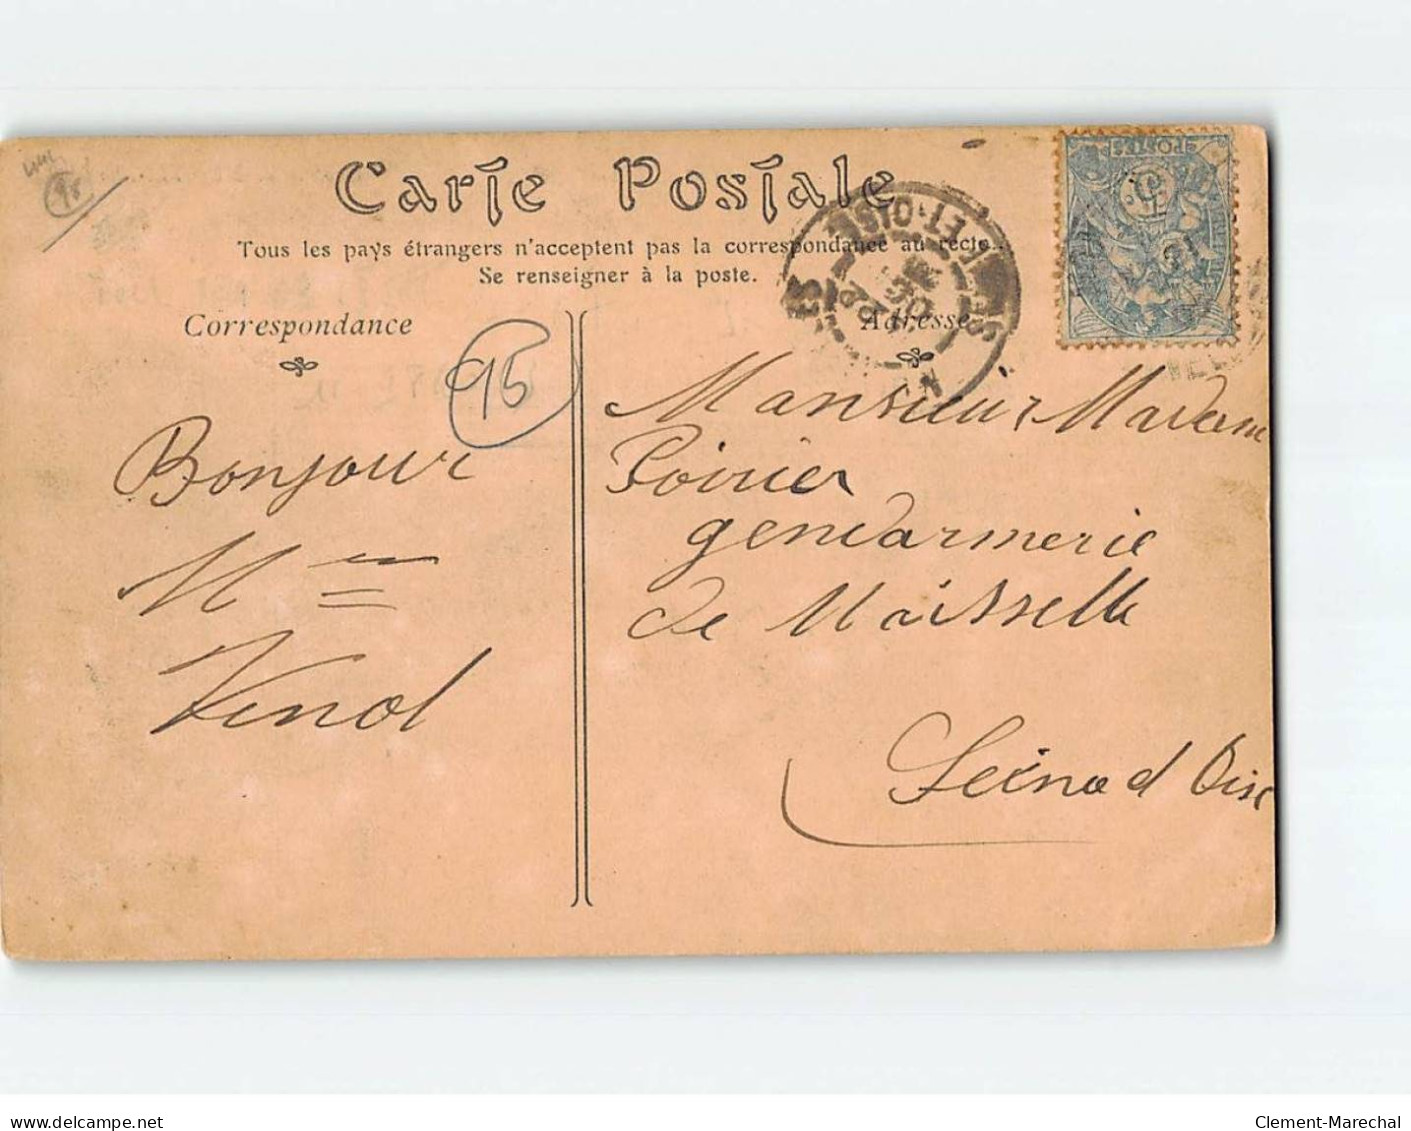 Carte Postale
Tous les pays étrangers n'acceptent pas la correspondance au recto.
Se renseigner à la poste.
Correspondance
Adresse
95
95
Bonjour
Mme
Venol
Monsieur Madame
Poirier
gendarmerie
de Maisselle
Seine d Oise
POSTES
ET-OISE
delcampe.net
Clement-Marechal